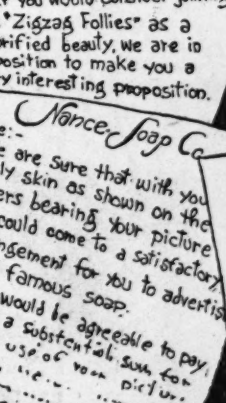 you would consider
"Zigzag Follies" as a
rified beauty, we are in
position to make you a
ry interesting proposition.
Nance. Soap Co
e:-
e are sure that with you
ly skin as shown on the
ers bearing your picture
could come to a satisfactory
ngement for you to advertis
famous soap.
would be agreeable to pay
a substantial sum for
use of your picture.